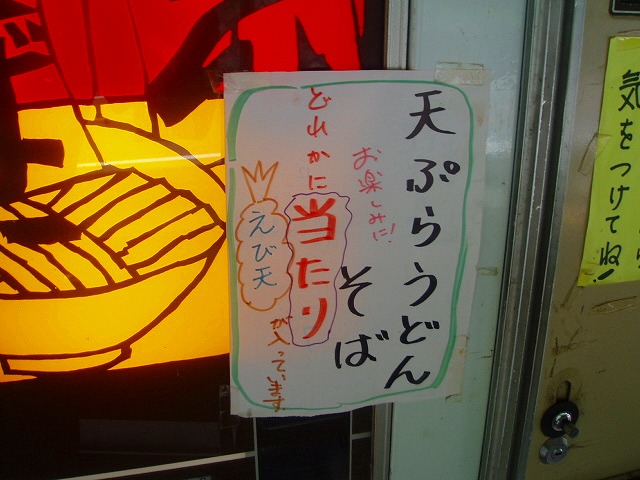 天ぷらうどん
そば
お楽しみに!
どれかに
当たり
えび天
が入っています
気をつけてね!